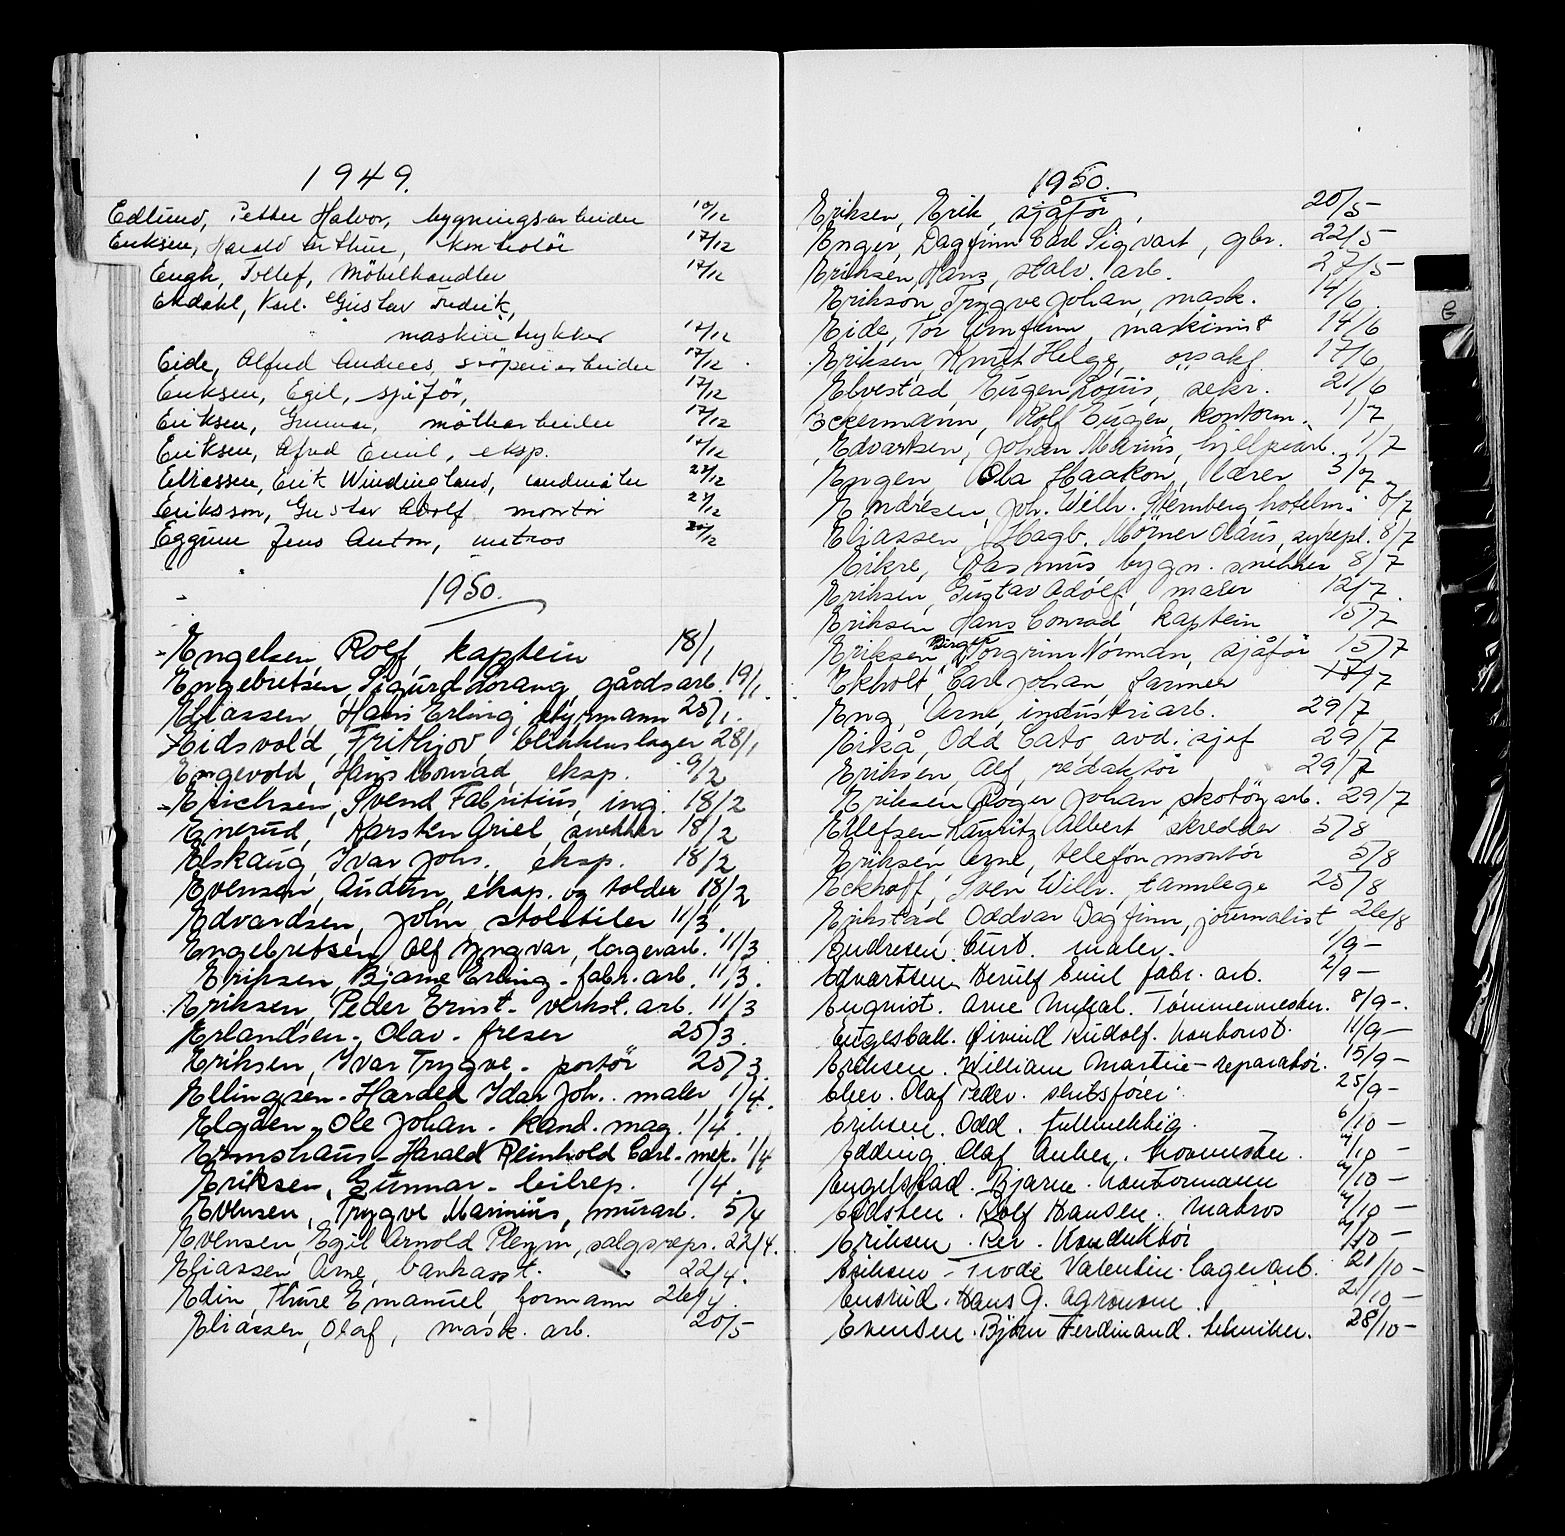 1949.
Edlund, Petter Halvor, bygningsarbeider 10/12
Eriksen, Harald Arthur, kontrolör 17/12
Engh, Tollef, Möbelhandler 17/12
Ekdahl, Karl Gustav Fredrik,
maskintrykker 17/12
Eide, Alfred Andreas, støperiarbeider 17/12
Eriksen, Egil, sjåför, 17/12
Eriksen, Gunnar, 17/12
Eriksen, Alfred Emil, eksp. 17/12
Eliassen, Erik Windingland, landmåler 27/12
Eriksson, Gustav Adolf montör 27/12
Eggum Jens Anton, matros 30/12
1950.
Engelsen, Rolf, kaptein 18/1
Engebretsen, Sigurd Lorang, gårdsarb. 19/1.
Eliassen, Hans Erling, styrmann 25/1.
Eidsvold, Frithjov, blikkenslager 28/1
Engevold, Hans Konrad, eksp. 9/2
Erichsen, Svend Fabritius, ing. 18/2
Enerud, Karsten Ariel, snekker 18/2
Elskaug, Ivar Johs. eksp. 18/2
Evensen, Audun, eksp. og tolder 18/2
Edvardsen, John, stolstiler 11/3.
Engebretsen, Alf Yngvar, lagerarb. 11/3
Eriksen, Bjarne Erling - fabr. arb. 11/3.
Eriksen, Peder Ernst - verkst. arb. 11/3
Erlandsen, Olav - freser 25/3.
Eriksen, Ivar Trygve - portör 25/3.
Ellingsen - Hardek Idar Joh. maler 1/4.
Elgåen, Ole Johan - kand. mag. 1/4.
Ermshaus - Harald Reinhold Carl - mek. 1/4
Eriksen, Gunnar - bilrep. 1/4.
Evensen, Trygve Marinius, murarb. 5/4
Evensen, Egil Arnold Pleym, salgsrepr. 22/4.
Eliassen, Arne, bankasst. 22/4.
Edin, Thure Emanuel, formann 26/4.
Eliassen, Olaf, mask. arb. 20/5
1950.
Eriksen, Erik, sjåför, 20/5-
Enger, Dagfinn Carl Sigvart, gbr. 22/5-
Eriksen, Hans, Halv. arb. 27/5-
Erikson, Trygve Johan, mask. 14/6.
Eide, Tor Arnfinn, maskinist 14/6
Eriksen, Knut Helge, 17/6
Elvestad, Eugen Louis, sekr. 21/6
Eckermann, Rolf Eugen, kontorm. 1/7
Edvartsen, Johan Marius, hjelpearb. 1/7
Engen, Ola Haakon, lærer 5/7
Endresen, Joh. Wilh. Sternberg hotelm. 8/7
Eliassen, Hagb. Mørner Olaus, sykepl. 8/7
Eikre, Rasmus, bygn. snekker 8/7
Eriksen, Gustav Adolf, maler 12/7.
Eriksen, Hans Conrad, kaptein 15/7
Birger
Eriksen, Torgrim Norman, sjåför 15/7
Ekholt, Carl Johan, farmer 17/7
Eng, Arne, industriarb. 29/7
Eikå, Odd Cato avd. sjef 29/7
Eriksen, Alf, redaktör 29/7
Eriksen, Roger Johan, skotöyarb. 29/7
Ellefsen, Lauritz Albert skredder 5/8
Eriksen, Arne, telefonmontör 5/8
Eckhoff, Sven Wilh. tannlege 25/8
Erikstad, Oddvar Dagfinn, journalist 26/8
Endresen. Curt. maler. 1/9-
Edvartsen. Herulf Emil fabr. arb. 2/9-
Enqvist. Arne Mikal. Tömmermester. 8/9-.
Engesbakk. Øivind Rudolf. kontorist. 11/9-
Eriksen. William Martin - reparatør. 15/9-
Elier. Olaf Peder. skiftsfører. 25/9-
Eriksen. Odd. fullmektig. 6/10-
Edding. Olaf Anker. hovmester. 7/10-
Engelstad. Bjarne. kontormann 7/10-
Eidsten. Rolf Hansen. Matros 7/10-
Eriksen. Per. Konduktör 7/10-
Eriksen - Frode Valentin. lagerarb. 21/10-
Ensrud. Hans G. agronom. 21/10-
Evensen. Bjørn Ferdinand. tekniker. 28/10-
E